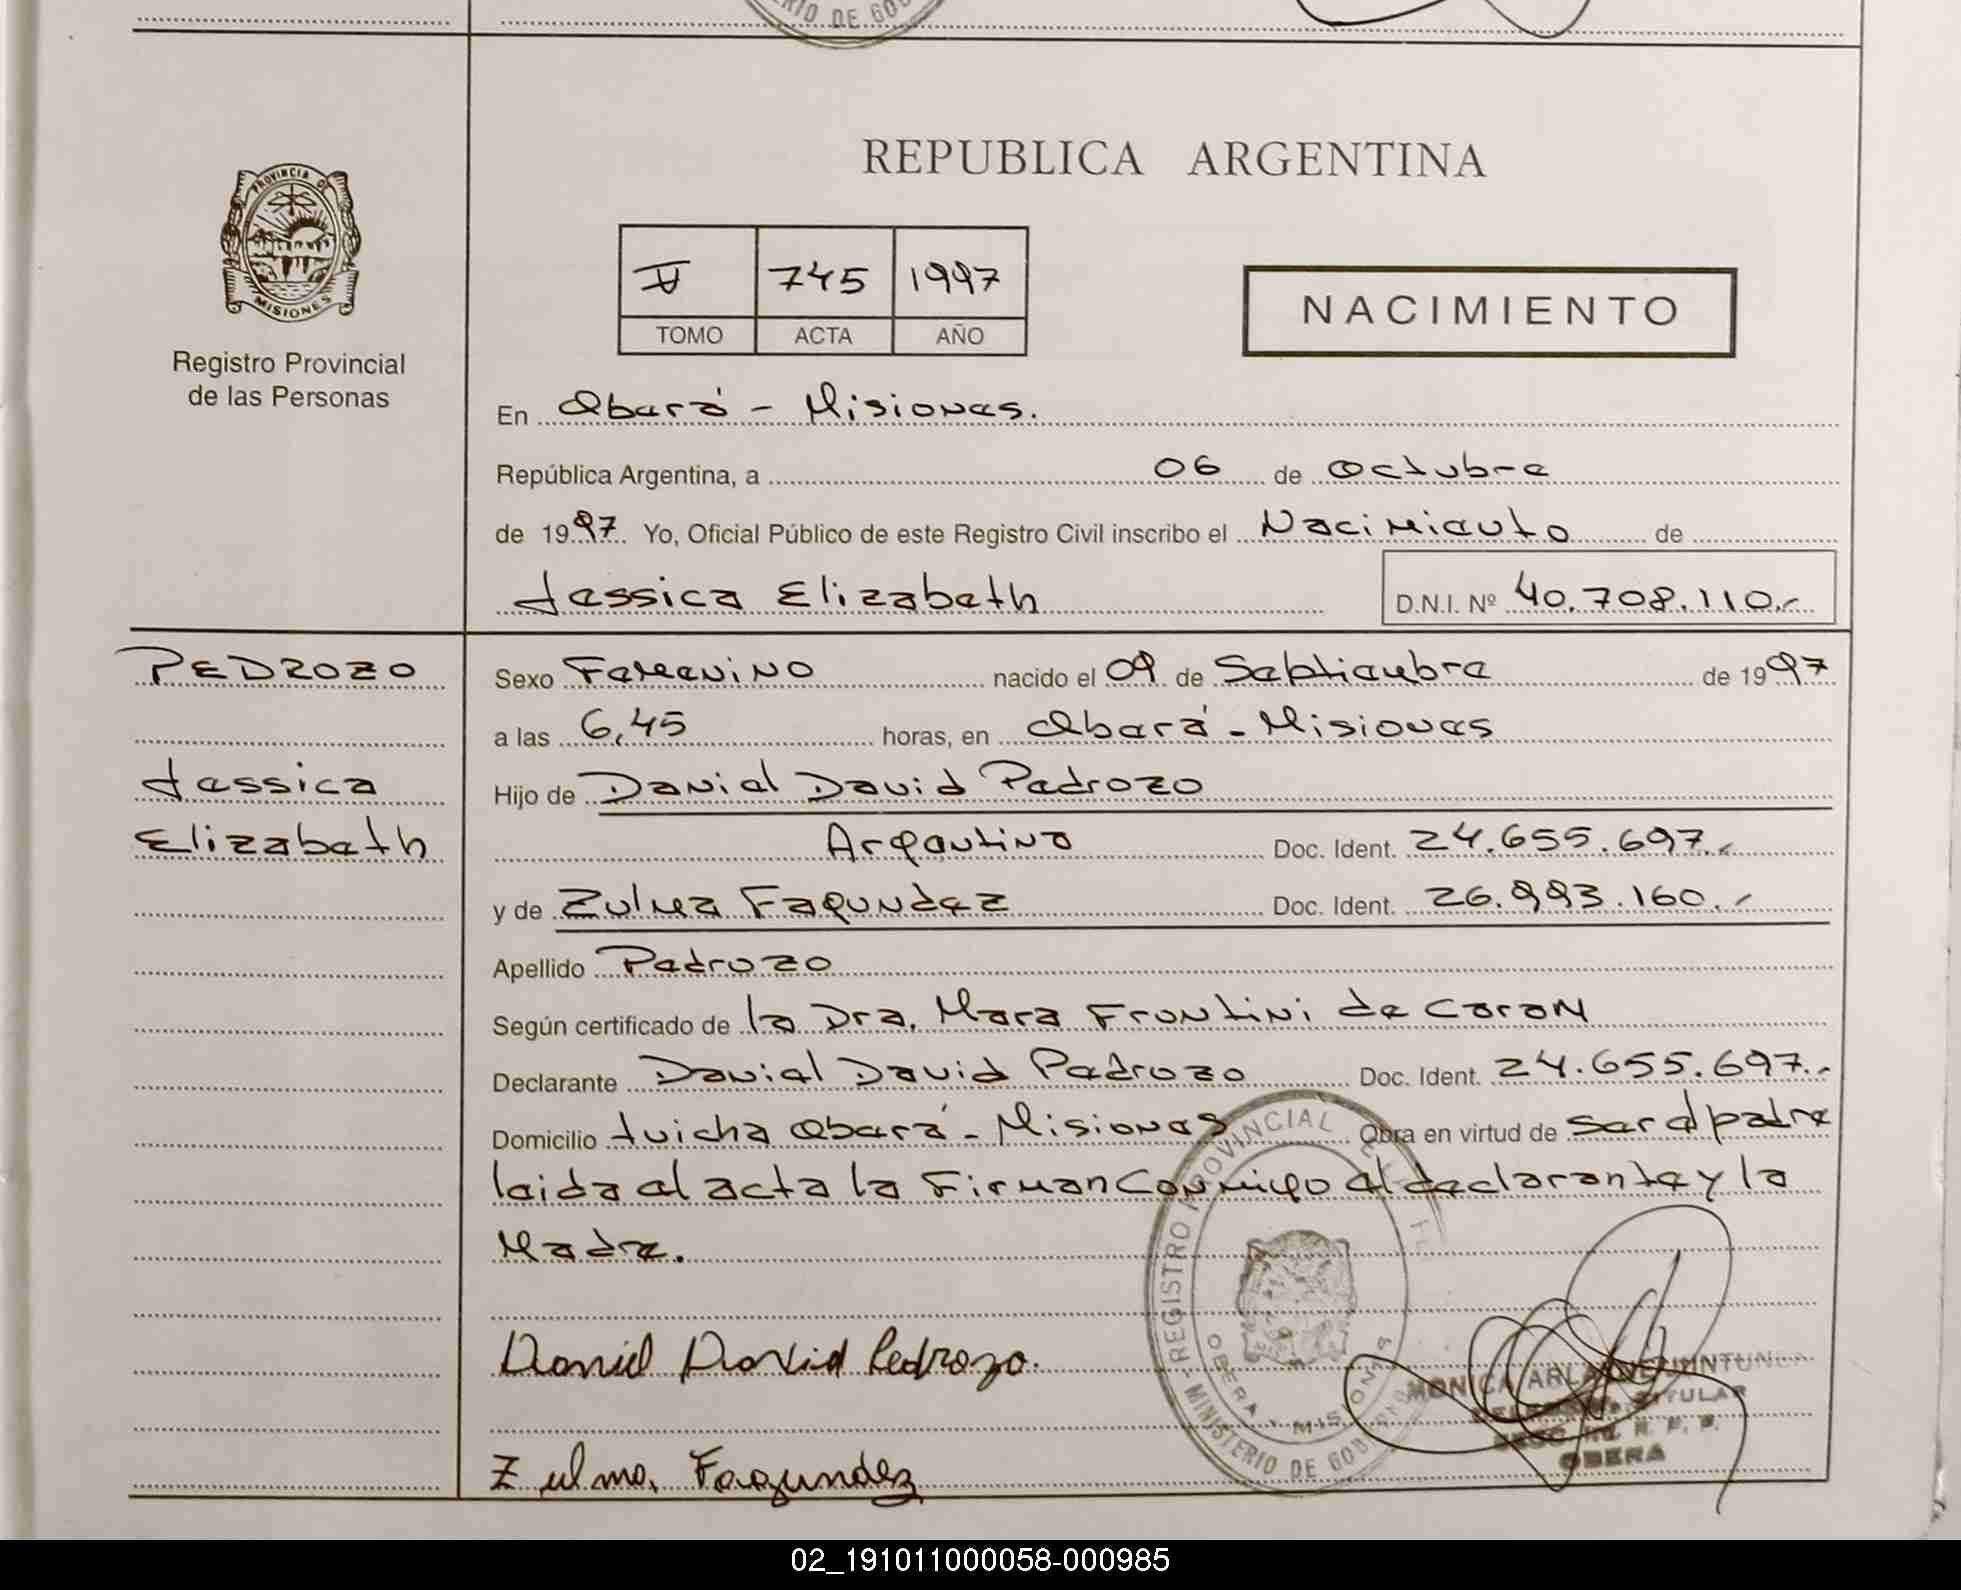 RIO DE GOB
REPUBLICA ARGENTINA
PROVINCIA DE
MISIONES
Registro Provincial
de las Personas
V 745 1997
TOMO ACTA AÑO
NACIMIENTO
En Oberá - Misiones.
República Argentina, a 06 de octubre
de 1997. Yo, Oficial Público de este Registro Civil inscribo el Nacimiento de
Jessica Elizabeth D.N.I. Nº 40.708.110.-
PEDROZO
Jessica
Elizabeth
Sexo Femenino nacido el 09 de Septiembre de 1997
a las 6,45 horas, en Oberá - Misiones
Hijo de Daniel David Pedrozo
Argentino Doc. Ident. 24.655.697.-
y de Zulma Fagundez Doc. Ident. 26.993.160.-
Apellido Pedrozo
Según certificado de la Dra. Mara Frontini de Coron
Declarante Daniel David Pedrozo Doc. Ident. 24.655.697.-
Domicilio Tuicha Oberá - Misiones Obra en virtud de ser el padre
leida el acta la Firman Conmigo el declarante y la
Madre.
Daniel David Pedrozo.
Zulma, Fagundez
REGISTRO PROVINCIAL DE
MINISTERIO DE GOBIERNO
OBERA - MISIONES
MONICA
TITULAR
R. P. P.
OBERA
02_191011000058-000985